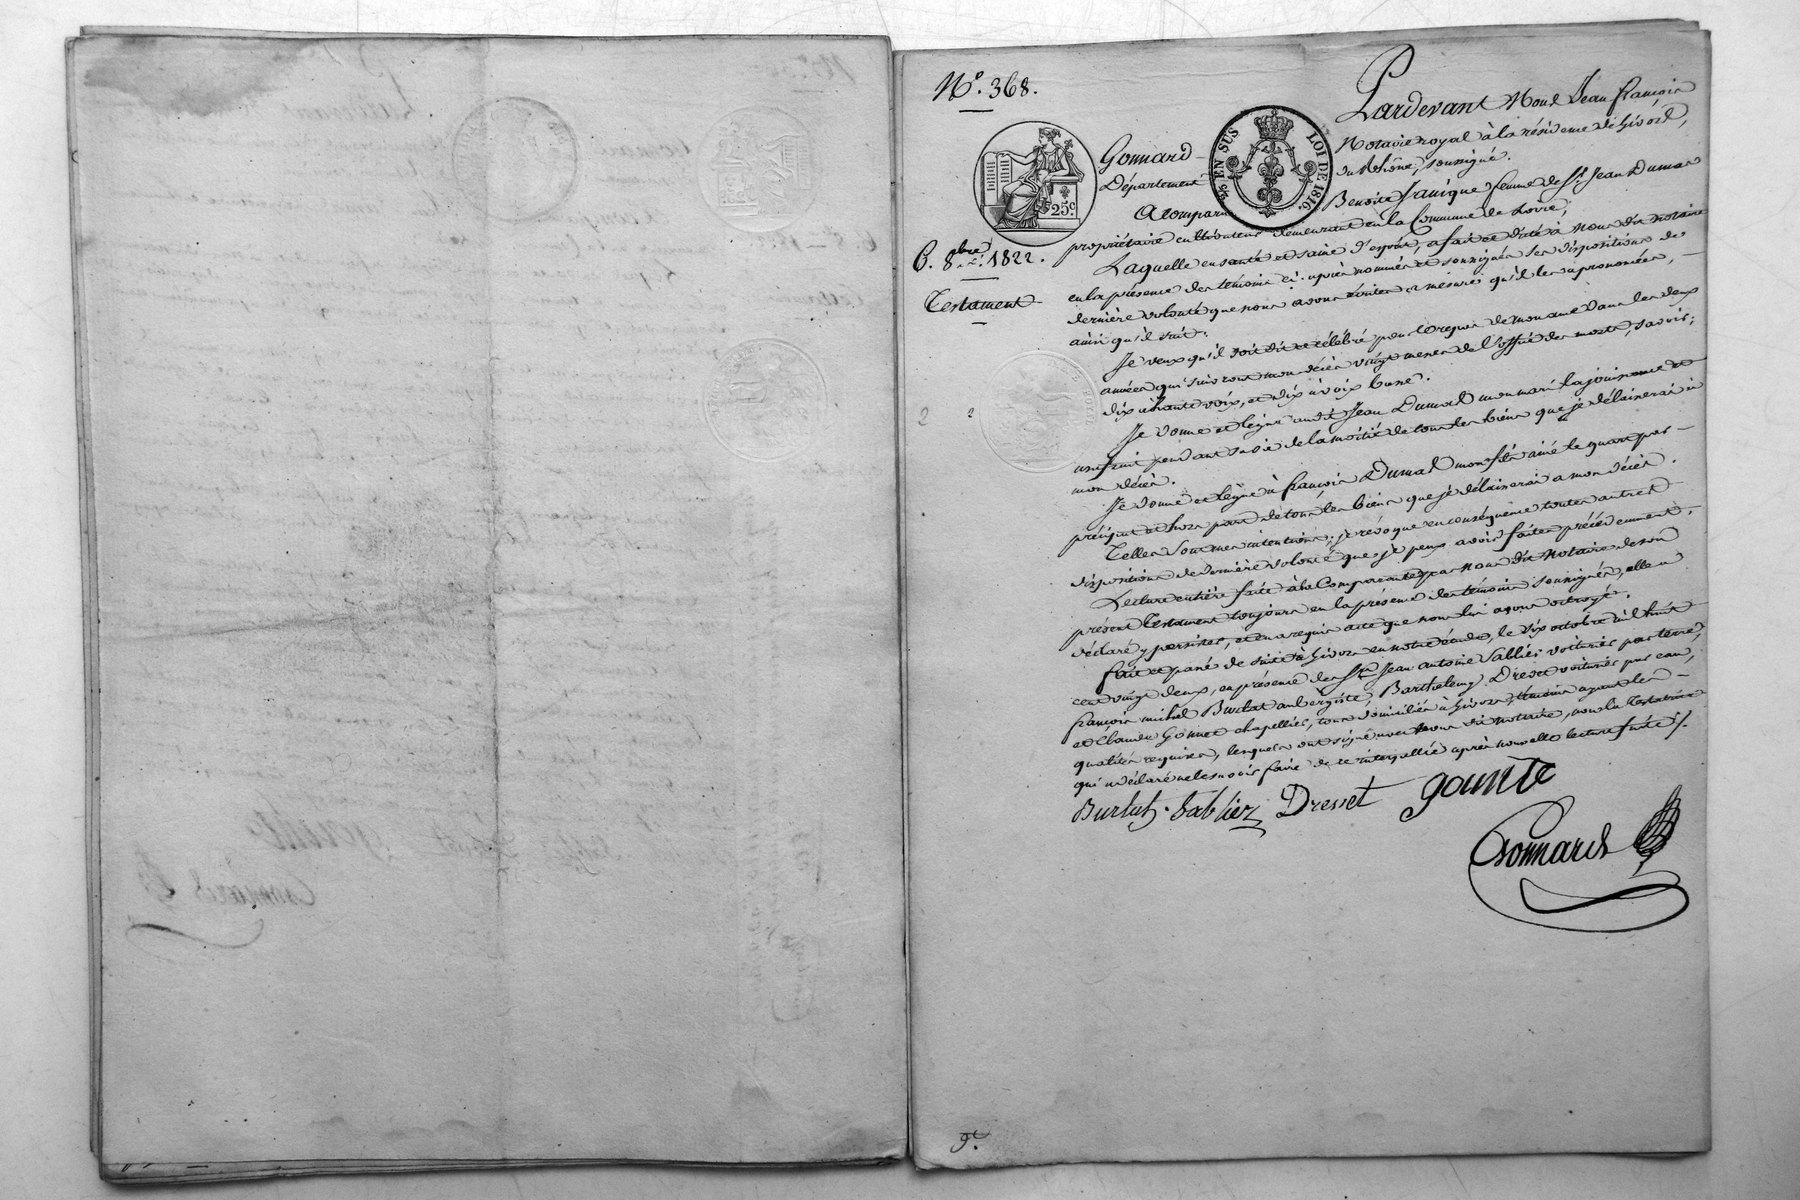 N.º 368.
Pardevant Nous Jean françois
Gonnard
Notaire royal à la résidence de Givors,
Département
du Rhône, soussigné.
A comparu
Benoite Janique femme de S.r Jean Dumas
25c.
EN SUS
LOI DE 1816.
propriétaire cultivateur demeurant en la Commune de Loire,
8.bre 1822.
Testament
Laquelle en santé et saine d'esprit, a fait et dicté à Nous dit notaire
en la présence des témoins ci-après nommés et soussignés ses dispositions de
dernière volonté que nous avons écrites a mesure qu'il les a prononcées,
ainsi qu'il suit.
Je veux qu'il soit dit et célébré pour le repos de mon ame dans les deux
années qui suivront mon décès vingt messes de l'office des morts, savoir;
dix a haute voix, et dix à voix basse.
Je donne et lègue audit Jean Dumas mon mari la jouissance et
usufruit pendant sa vie de la moitié de tous les biens que je délaisserai à
mon décès.
Je donne et lègue à françois Dumas mon fils ainé le quart par
préciput et hors part de tous les biens que je délaisserai a mon décès.
Telles sont mes intentions; je révoque en conséquence toutes autres
dispositions de dernière volonté que je peux avoir faites précédemment.
Lecture entière faite à la Comparante par Nous dit Notaire de son
présent testament toujours en la présence des témoins soussignés, elle a
déclaré y persister, et en a requis acte que nous lui avons octroyé.
fait et passé de suite à Givors en notre étude, le dix octobre mil huit
cent vingt deux, en présence des S.rs Jean Antoine Sablier voiturier par terre,
françois michel Burlat aubergiste, Barthelemy Dresset voiturier par eau,
et Claude Gonnet chapellier, tous domiciliés à Givors, témoins ayant les
qualités requises, lesquels ont signé avec Nous dit notaire, non la testatrice
qui a déclaré ne le savoir faire de ce interpellée après nouvelle lecture faite ./.
Burlat. Sablier Dresset
Gonnard